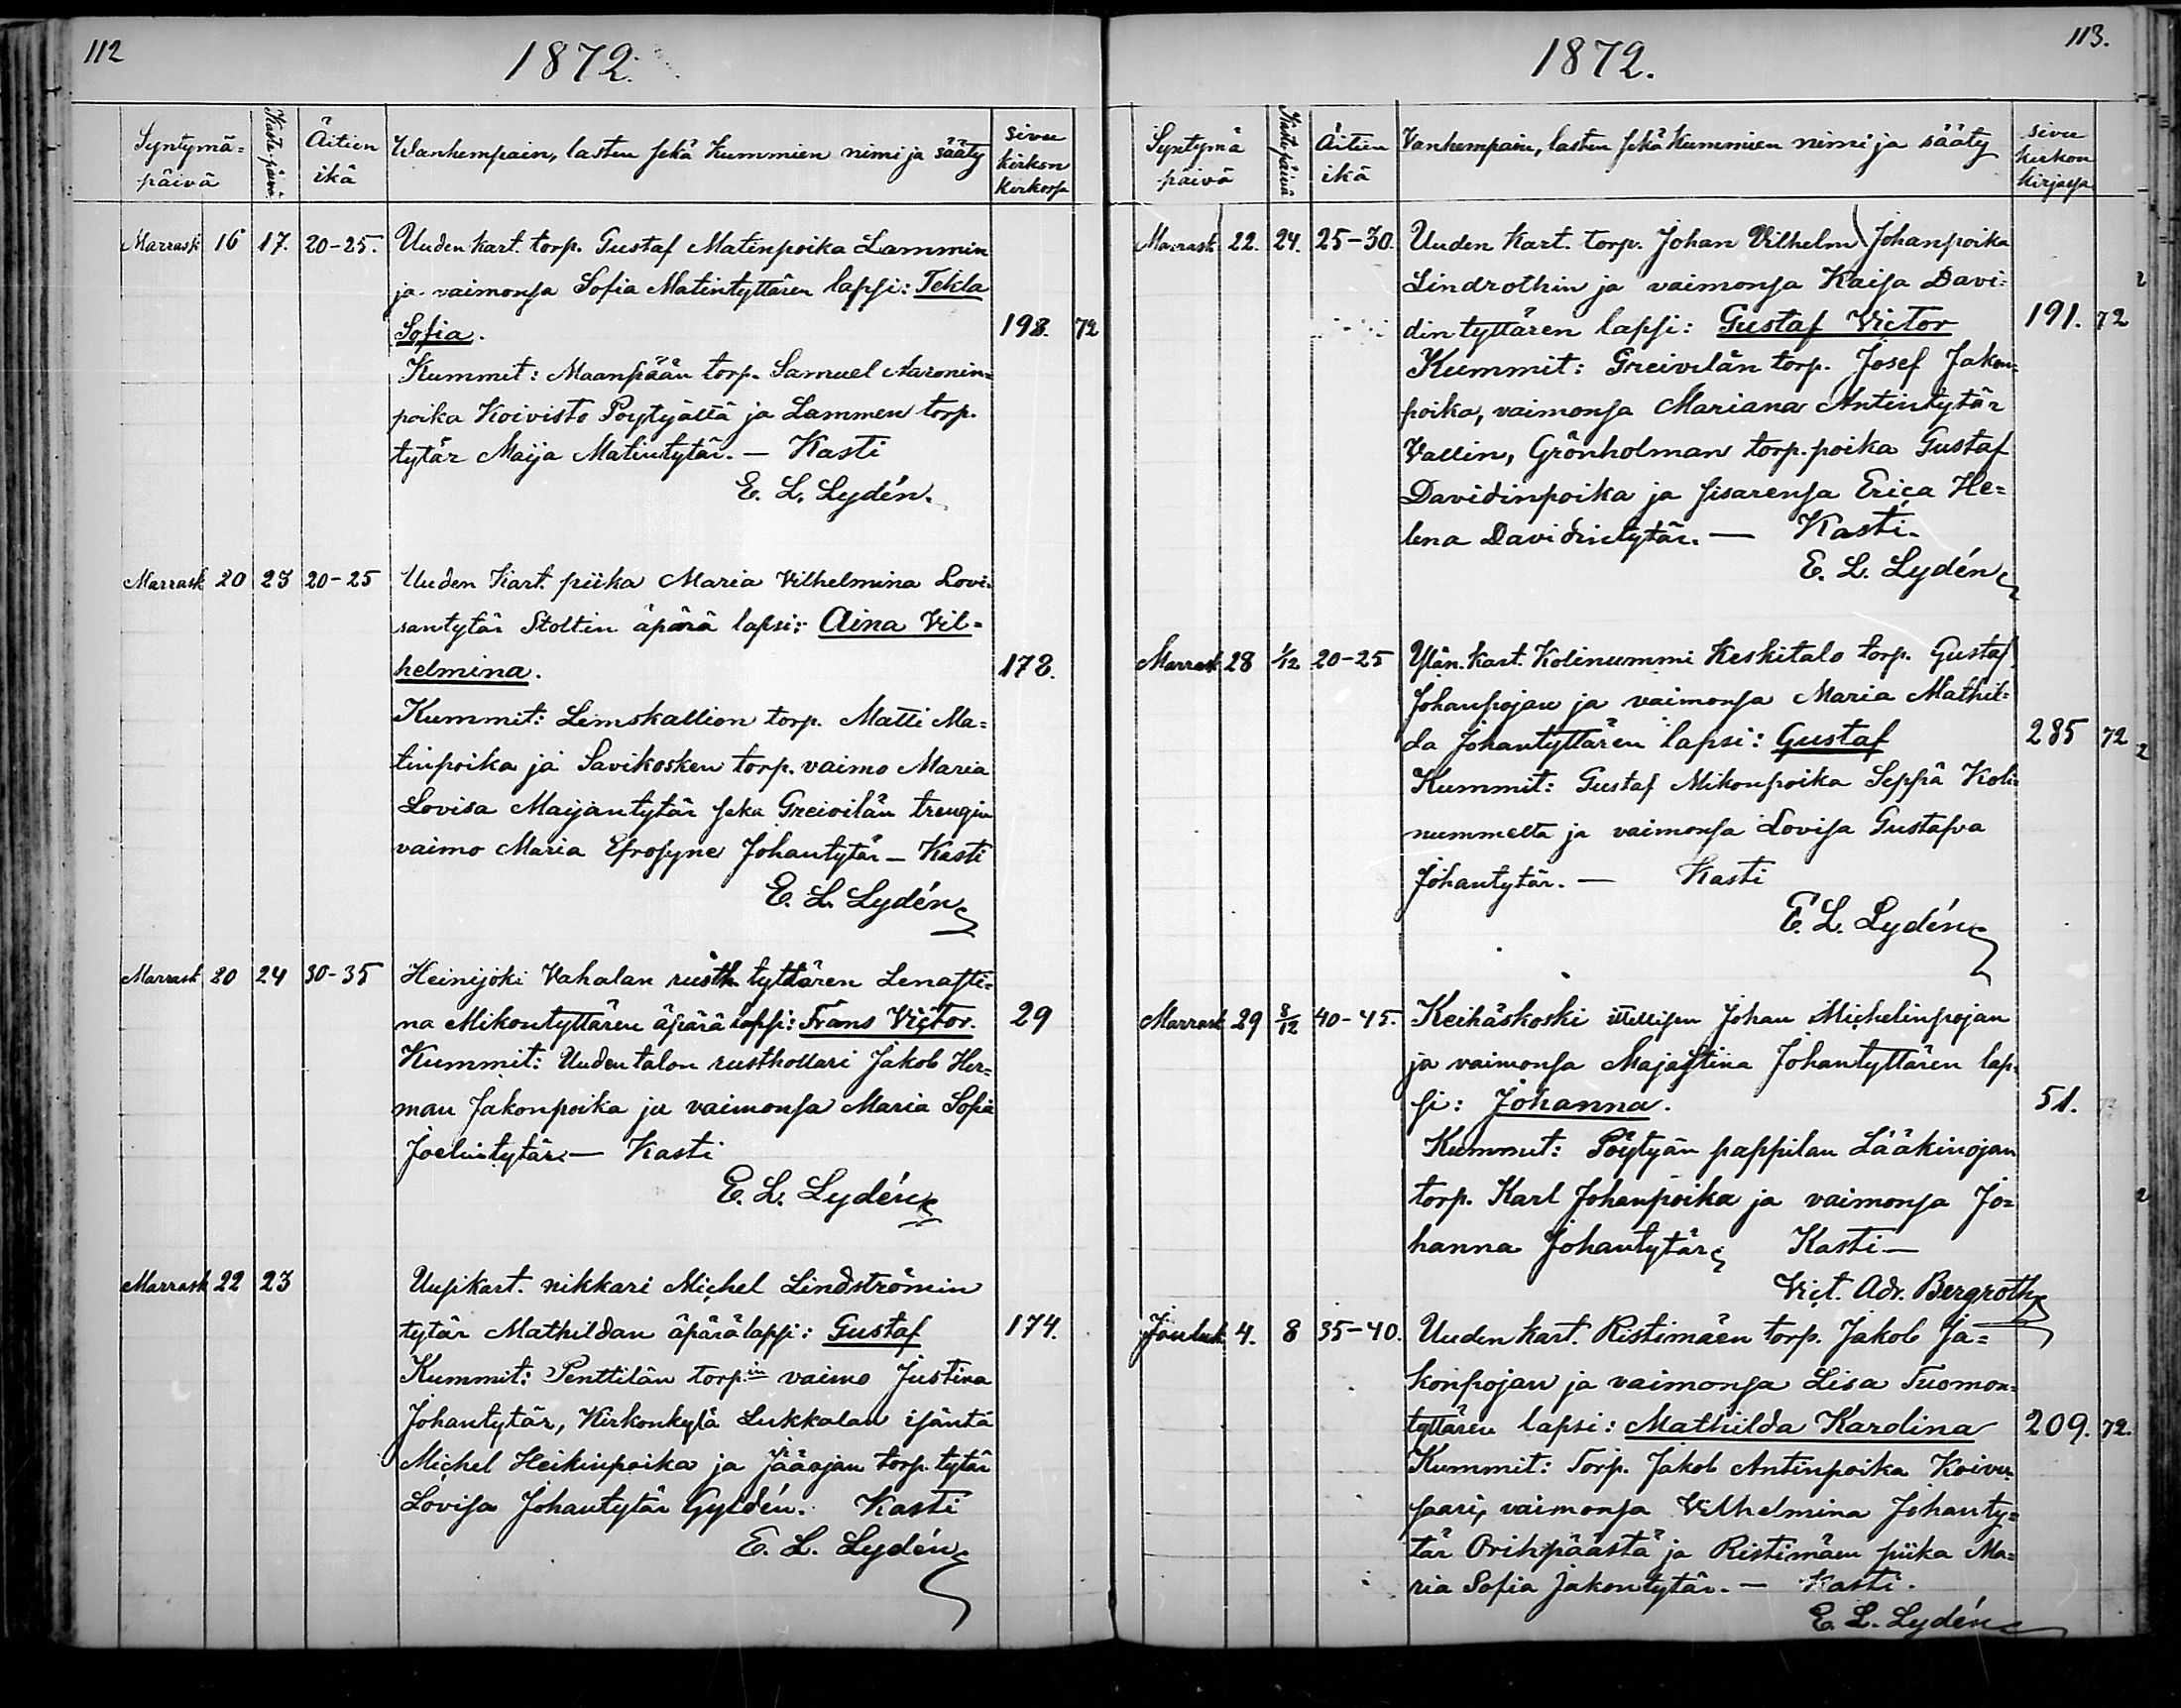 112
1872.
Syntymä=
päivä
Kaste-päivä
Äitien
ikä
Wanhempain, lasten sekä Kummien nimi ja sääty
sivu
kirkon
Marrask 16 17. 20-25. Uuden kart. torp. Gustaf Matinpoika Lammin
ja vaimonsa Sofia Matintyttären lapsi: Tekla
Sofia. 198. 72
Kummit: Maanpään torp. Samuel Aaronin=
poika Koivisto Pöytyältä ja Lammen torp.
tytär Maija Matintytär. — Kasti
E. L. Lydén.
Marrask 20 23 20-25 Uuden Kart. piika Maria Vilhelmina Lovi=
santytär Stoltin äpärä lapsi: Aina Vil=
helmina. 178.
Kummit: Limskallion torp. Matti Ma=
tinpoika ja Savikosken torp. vaimo Maria
Lovisa Maijantytär seka Greivilän trengin
vaimo Maria Efrosyne Johantytär — Kasti
E. L. Lydén
Marrask 20 24 30-35 Heinijoki Vahalan rusth. tyttären Lenasti=
na Mikontyttären äpärä lapsi: Frans Victor. 29
Kummit: Uudentalon rusthollari Jakob Her=
man Jakonpoika ja vaimonsa Maria Sofia
Joelintytär. — Kasti
E. L. Lydén
Marrask 22 23 Uusikart. nikkari Michel Lindströmin
tytär Mathildan äpärälapsi: Gustaf 174.
Kummit: Penttilän torp.in vaimo Justina
Johantytär, Kirkonkylä Lukkalan isäntä
Michel Heikinpoika ja Jääojan torp. tytär
Lovisa Johantytär Gyldén. Kasti
E. L. Lydén
113.
1872.
Syntymä
päivä
Kaste-päivä
Äitien
ikä
Vanhempain, lasten sekä Kummien nimi ja sääty
sivu
kirkon
kirjassa
Marrask 22. 24. 25-30. Uuden Kart. torp. Johan Vilhelm Johanpoika
Lindrothin ja vaimonsa Kaisa Davi=
din tyttären lapsi: Gustaf Victor 191. 72
Kummit: Greivilän torp. Josef Jakon=
poika, vaimonsa Mariana Antintytär
Vallin, Grönholman torp. poika Gustaf
Davidinpoika ja sisarensa Erica He=
lena Davidintytär. — Kasti.
E. L. Lydén
Marrask 28 1/12 20-25 Ylän. Kart. Kolinummi Keskitalo torp. Gustaf
Johanpojan ja vaimonsa Maria Mathil=
da Johantyttären lapsi: Gustaf 285 72
Kummit: Gustaf Mikonpoika Seppä Koli=
nummelta ja vaimonsa Lovisa Gustafva
Johantytär. — Kasti
E. L. Lydén
Marrask 29 8/12 40-45. Keihäskoski itsellisen Johan Michelinpojan
ja vaimonsa Majastina Johantyttären lap=
si: Johanna. 51.
Kummit: Pöytyän pappilan Lääkinojan
torp. Karl Johanpoika ja vaimonsa Jo=
hanna Johantytär Kasti —
Vict. Adr. Bergroth
Jouluk. 4. 8 35-40. Uuden kart. Ristimäen torp. Jakob Ja=
konpojan ja vaimonsa Lisa Tuomon=
tyttären lapsi: Mathilda Karolina 209. 72.
Kummit: Torp. Jakob Antinpoika Koivu=
saari, vaimonsa Vilhelmina Johanty=
tär Orihpäästä ja Ristimäen piika Ma=
ria Sofia Jakontytär. — Kasti.
E. L. Lydén